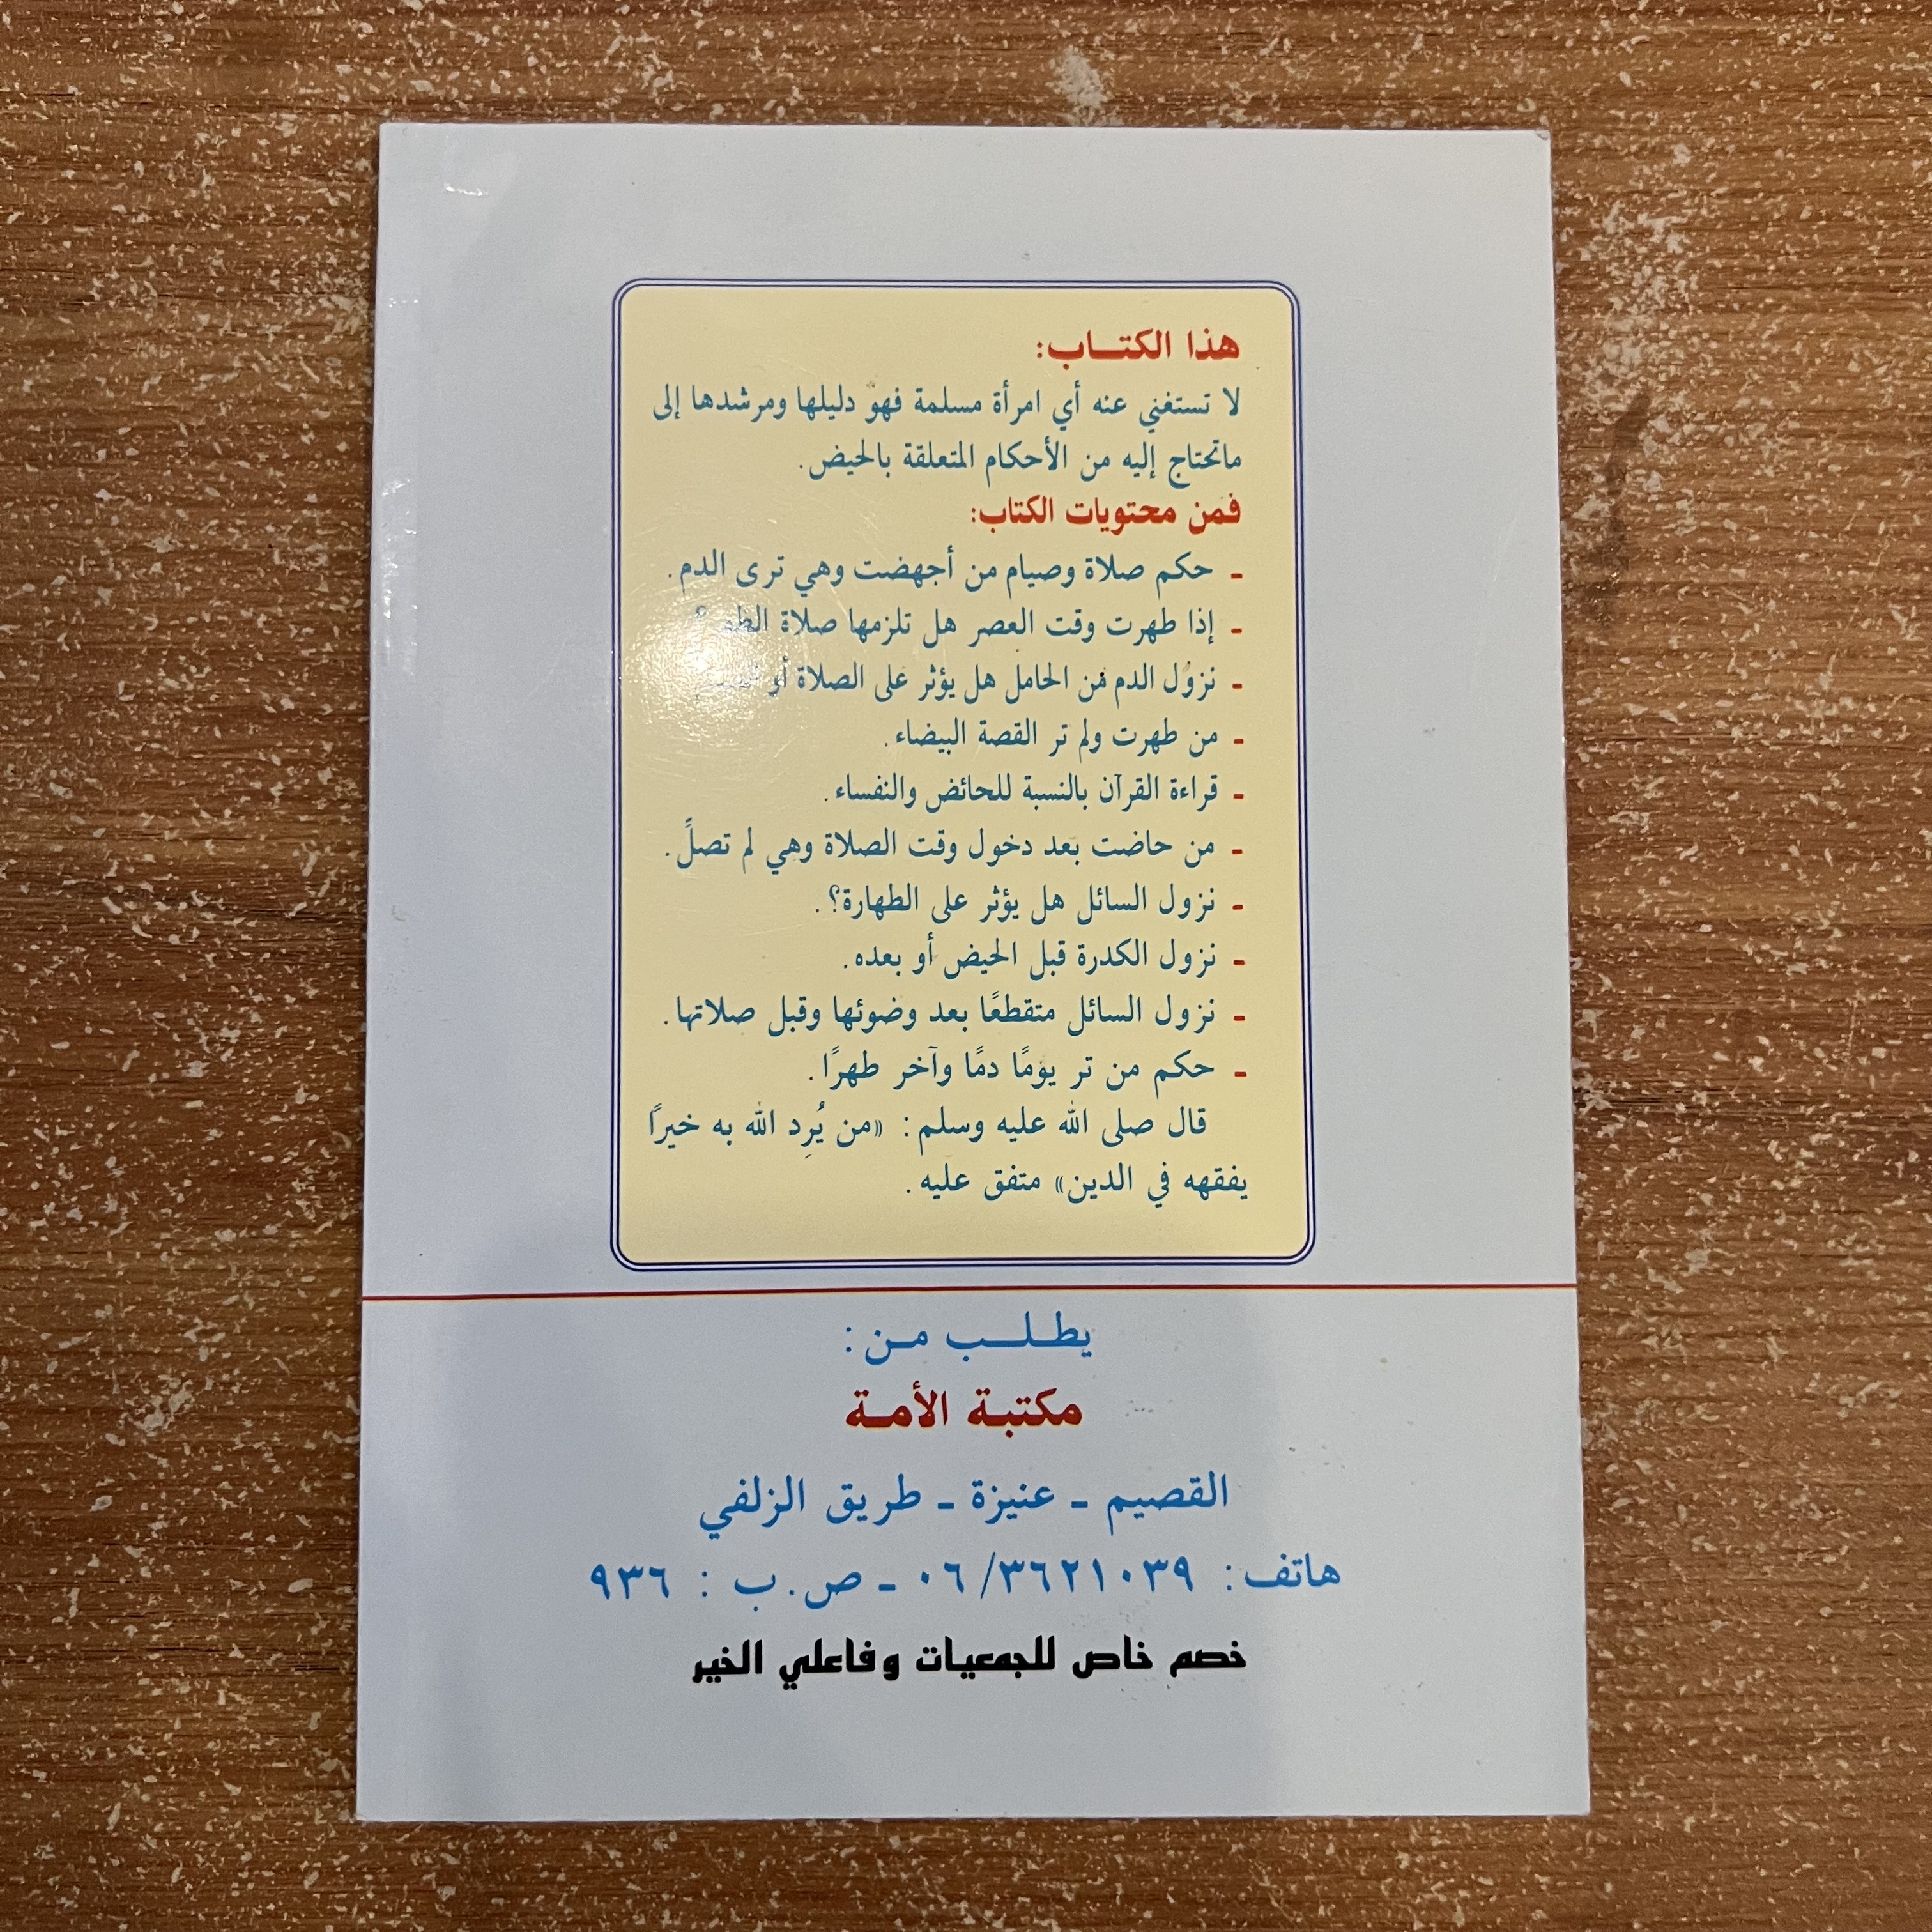 هذا الكتـــاب:
لا تستغني عنه أي امرأة مسلمة فهو دليلها ومرشدها إلى
ماتحتاج إليه من الأحكام المتعلقة بالحيض.
فمن محتويات الكتاب:
- حكم صلاة وصيام من أجهضت وهي ترى الدم.
- إذا طهرت وقت العصر هل تلزمها صلاة
- نزول الدم من الحامل هل يؤثر على الصلاة أو
- من طهرت ولم تر القصة البيضاء.
- قراءة القرآن بالنسبة للحائض والنفساء.
- من حاضت بعد دخول وقت الصلاة وهي لم تصلِّ.
- نزول السائل هل يؤثر على الطهارة؟.
- نزول الكدرة قبل الحيض أو بعده.
- نزول السائل متقطعًا بعد وضوئها وقبل صلاتها.
- حكم من تر يومًا دمًا وآخر طهرًا.
قال صلى الله عليه وسلم: «من يُرِد الله به خيرًا
يفقهه في الدين» متفق عليه.
يطـلـــب مـن:
مكتبـة الأمـة
القصيم - عنيزة - طريق الزلفي
هاتف: ٠٦/٣٦٢١٠٣٩ - ص.ب : ٩٣٦
خصم خاص للجمعيات وفاعلي الخير